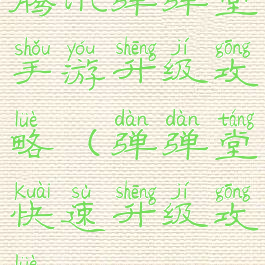 腾讯弹弹堂
shǒu yóu shēng jí gōng
手游升级攻
lüè dàn dàn táng
略（弹弹堂
Kuài sù shēng jí gōng
快速升级攻
lüè